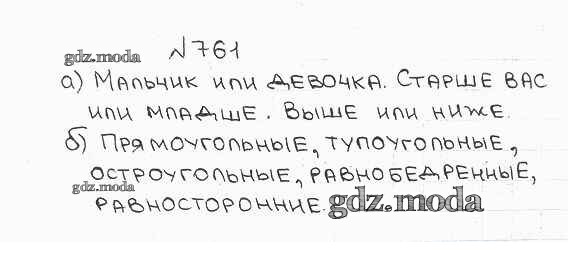 №761
gdz.moda
а) Мальчик или девочка. Старше вас
или младше. Выше или ниже.
б) Прямоугольные, тупоугольные,
остроугольные, равнобедренные,
gdz.moda
равносторонние. gdz.moda